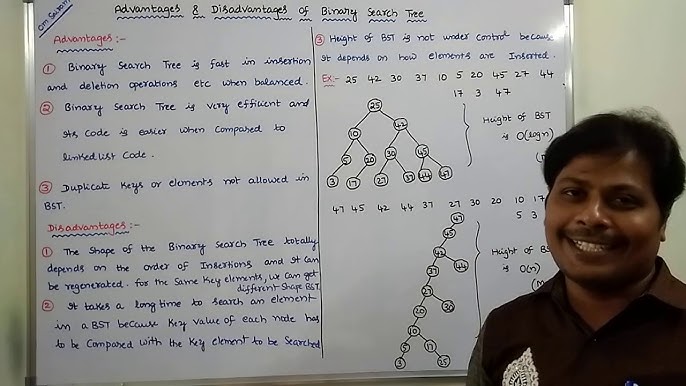 Om Sairam
Advantages & Disadvantages of Binary Search Tree
Advantages :-
① Binary Search Tree is fast in insertion
and deletion operations etc when balanced.
② Binary Search Tree is very efficient and
its code is easier when compared to
linked list code.
③ Duplicate keys or elements not allowed in
BST.
Disadvantages :-
① The shape of the Binary Search Tree totally
depends on the order of Insertions and it can
be regenerated. for the Same Key elements, we can get
different Shape BST.
② It takes a long time to search an element
in a BST because Key value of each node has
to be Compared with the Key element to be Searched
③ Height of BST is not under control because
it depends on how elements are Inserted.
Ex:- 25 42 30 37 10 5 20 45 27 44
17 3 47
25
10 42
5 20 30 45
3 17 27 37 44 47
Height of BST
is O(logn)
47 45 42 44 37 27 30 20 10 17
5 3
47
45
42
37 44
27
20 30
10
5 17
3 25
Height of BS
is O(n)